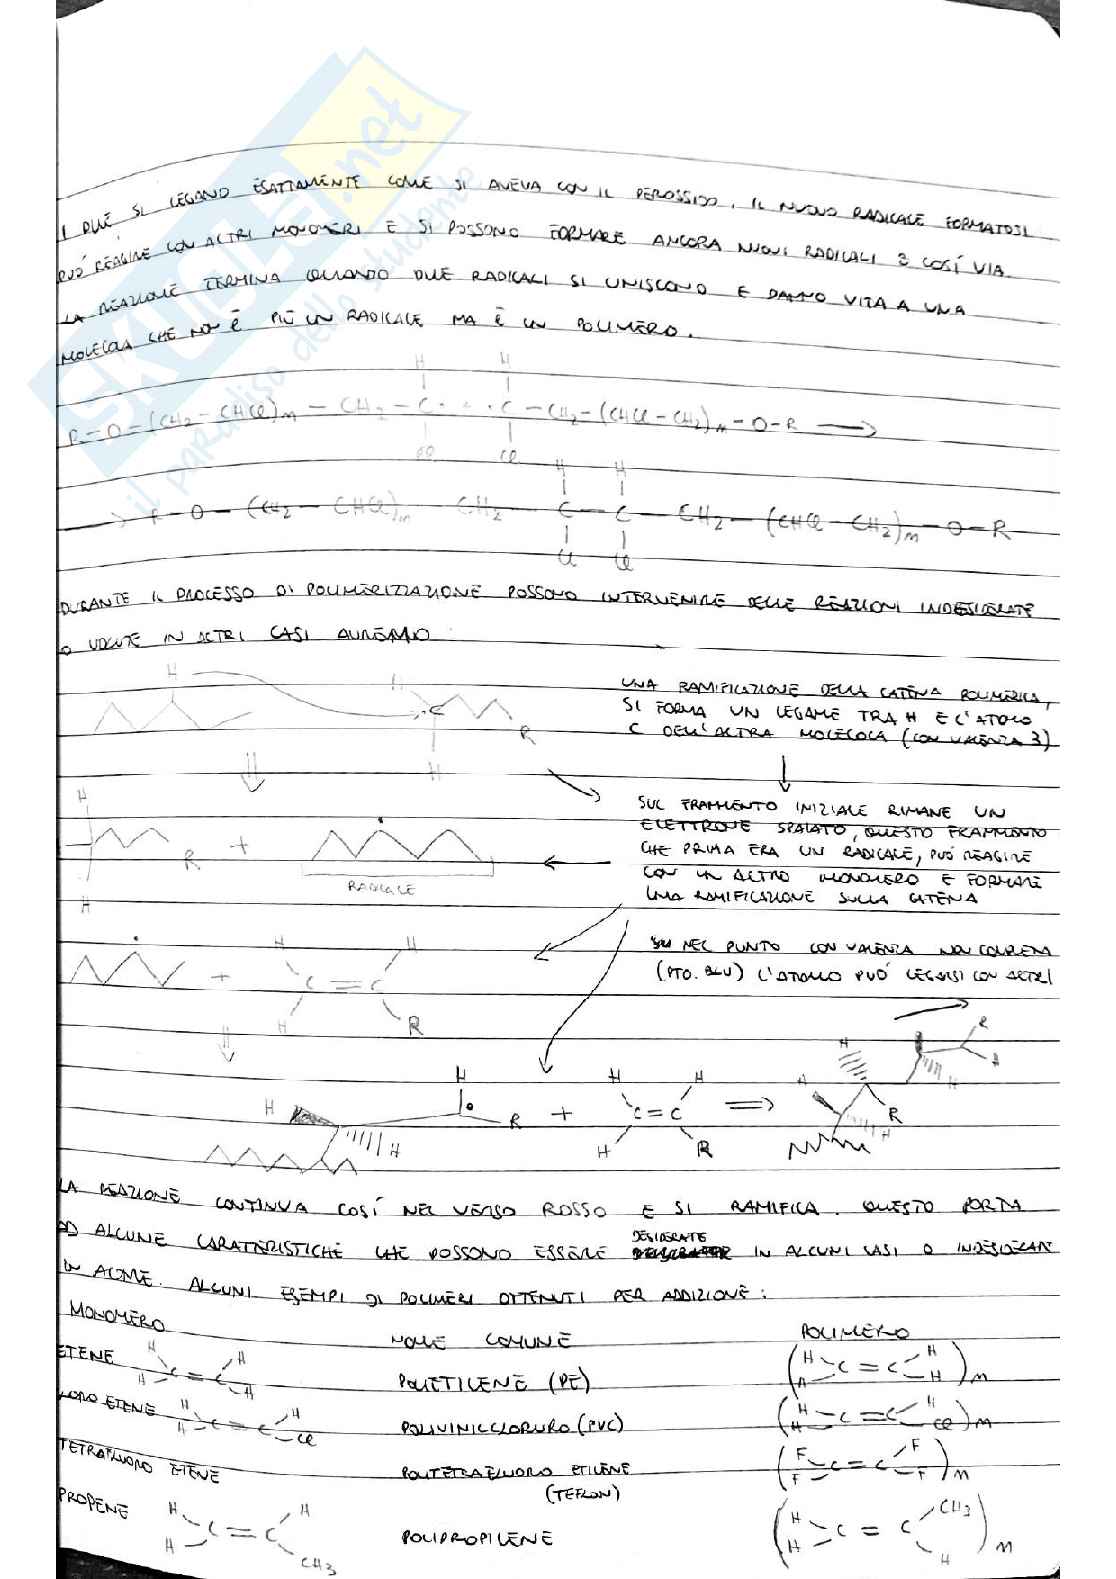 SKUOLA.net
il paradiso dello studente
I DUE SI LEGANO ESATTAMENTE COME SI AVEVA CON IL PEROSSIDO. IL NUOVO RADICALE FORMATOSI
PUÒ REAGIRE CON ALTRI MONOMERI E SI POSSONO FORMARE ANCORA NUOVI RADICALI E COSÍ VIA.
LA REAZIONE TERMINA QUANDO DUE RADICALI SI UNISCONO E DANNO VITA A UNA
MOLECOLA CHE NON È PIÙ UN RADICALE MA È UN POLIMERO.
H H
R-O-(CH2-CHCl)n-CH2-C· + ·C-CH2-(CHCl-CH2)m-O-R →
Cl Cl
H H
→ R-O-(CH2-CHCl)n CH2-C-C-CH2-(CHCl-CH2)m-O-R
Cl Cl
DURANTE IL PROCESSO DI POLIMERIZZAZIONE POSSONO INTERVENIRE DELLE REAZIONI INDESIDERATE
O VOLUTE IN ALTRI CASI AVREMO:
UNA RAMIFICAZIONE DELLA CATENA POLIMERICA,
SI FORMA UN LEGAME TRA H E L'ATOMO
C DELL'ALTRA MOLECOLA (CON VALENZA 3)
H H C R H
SUL FRAMMENTO INIZIALE RIMANE UN
ELETTRONE SPAIATO, QUESTO FRAMMENTO
CHE PRIMA ERA UN RADICALE, PUÓ REAGIRE
CON UN ALTRO MONOMERO E FORMARE
UNA RAMIFICAZIONE SULLA CATENA
H R + H
RADICALE
NEL PUNTO CON VALENZA NON COMPLETA
(PTO. BLU) L'ATOMO PUÓ LEGARSI CON ALTRI
+ H H C=C H R
H H H R + H H C=C H R ⇒ H H R H H R H
LA REAZIONE CONTINUA COSÍ NEL VERSO ROSSO E SI RAMIFICA. QUESTO PORTA
AD ALCUNE CARATTERISTICHE CHE POSSONO ESSERE DESIDERATE IN ALCUNI CASI O INDESIDERATE
IN ALTRE. ALCUNI ESEMPI DI POLIMERI OTTENUTI PER ADDIZIONE:
MONOMERO NOME COMUNE POLIMERO
ETENE H H C=C H H POLIETILENE (PE) (H H C=C H H)n
CLORO ETENE H H C=C H Cl POLIVINILCLORURO (PVC) (H H C=C H Cl)n
TETRAFLUORO ETENE POLITETRAFLUORO ETILENE (F F C=C F F)n
(TEFLON)
PROPENE H H C=C H CH3 POLIPROPILENE (H H C=C CH3 H)n